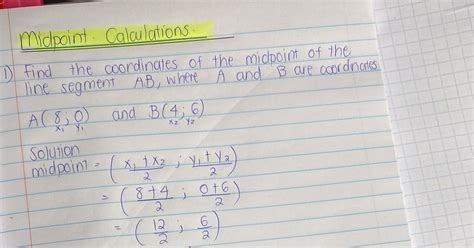 Midpoint Calculations.
1) Find the coordinates of the midpoint of the
line segment AB, where A and B are coordinates
A(8;0) and B(4;6)
x₁ y₁ x₂ y₂
Solution
midpoint = (x₁+x₂/2 ; y₁+y₂/2)
= (8+4/2 ; 0+6/2)
= (12/2 ; 6/2)